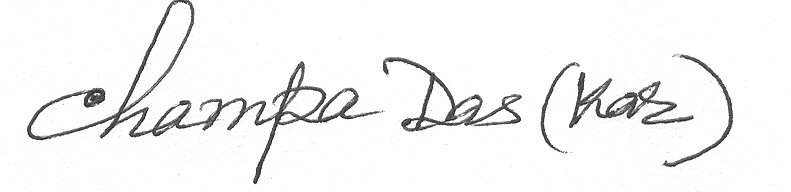 Champa Das (Kar)